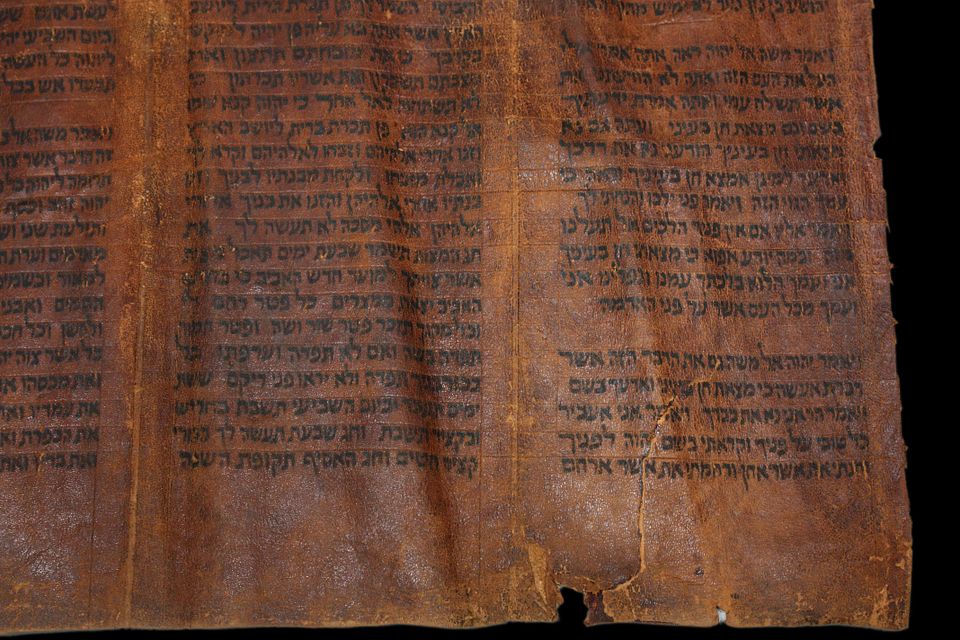 יהושע בן נון נער לא ימיש מתוך
ויאמר משה אל יהוה ראה אתה אמר אלי
העל את העם הזה ואתה לא הודעתני את
אשר תשלח עמי ואתה אמרת ידעתיך
בשם וגם מצאת חן בעיני ועתה אם נא
מצאתי חן בעיניך הודעני נא את דרכך
ואדעך למען אמצא חן בעיניך וראה כי
עמך הגוי הזה ויאמר פני ילכו והנחתי לך
ויאמר אליו אם אין פניך הלכים אל תעלנו
מזה ובמה יודע אפוא כי מצאתי חן בעיניך
אני ועמך הלוא בלכתך עמנו ונפלינו אני
ועמך מכל העם אשר על פני האדמה
ויאמר יהוה אל משה גם את הדבר הזה אשר
דברת אעשה כי מצאת חן בעיני ואדעך בשם
ויאמר הראני נא את כבדך ויאמר אני אעביר
כל טובי על פניך וקראתי בשם יהוה לפניך
וחנתי את אשר אחן ורחמתי את אשר ארחם
והיבוסי השמר לך פן תכרת ברית ליושב
הארץ אשר אתה בא עליה פן יהיה למוקש
בקרבך כי את מזבחתם תתצון ואת
מצבתם תשברון ואת אשריו תכרתון כי
לא תשתחוה לאל אחר כי יהוה קנא שמו
אל קנא הוא פן תכרת ברית ליושב הארץ
וזנו אחרי אלהיהם וזבחו לאלהיהם וקרא לך
ואכלת מזבחו ולקחת מבנתיו לבניך וזנו
בנתיו אחרי אלהיהן והזנו את בניך אחרי
אלהיהן אלהי מסכה לא תעשה לך את
חג המצות תשמר שבעת ימים תאכל מצות
אשר צויתך למועד חדש האביב כי בחדש
האביב יצאת ממצרים כל פטר רחם לי
וכל מקנך תזכר פטר שור ושה ופטר חמור
תפדה בשה ואם לא תפדה וערפתו כל
בכור בניך תפדה ולא יראו פני ריקם ששת
ימים תעבד וביום השביעי תשבת בחריש
ובקציר תשבת וחג שבעת תעשה לך בכורי
קציר חטים וחג האסיף תקופת השנה
לעשת אתם
וביום השביעי
ליהוה כל העשה
תבערו אש בכל
ויאמר משה אל
זה הדבר אשר צוה
תרומה ליהוה כל
יהוה זהב וכסף
ותולעת שני
מאדמים וערת
למאור ובשמים
השהם ואבני
ולחשן וכל
כל אשר צוה
ואת מכסהו
את עמדיו
את הכפרת
את בדיו ואת